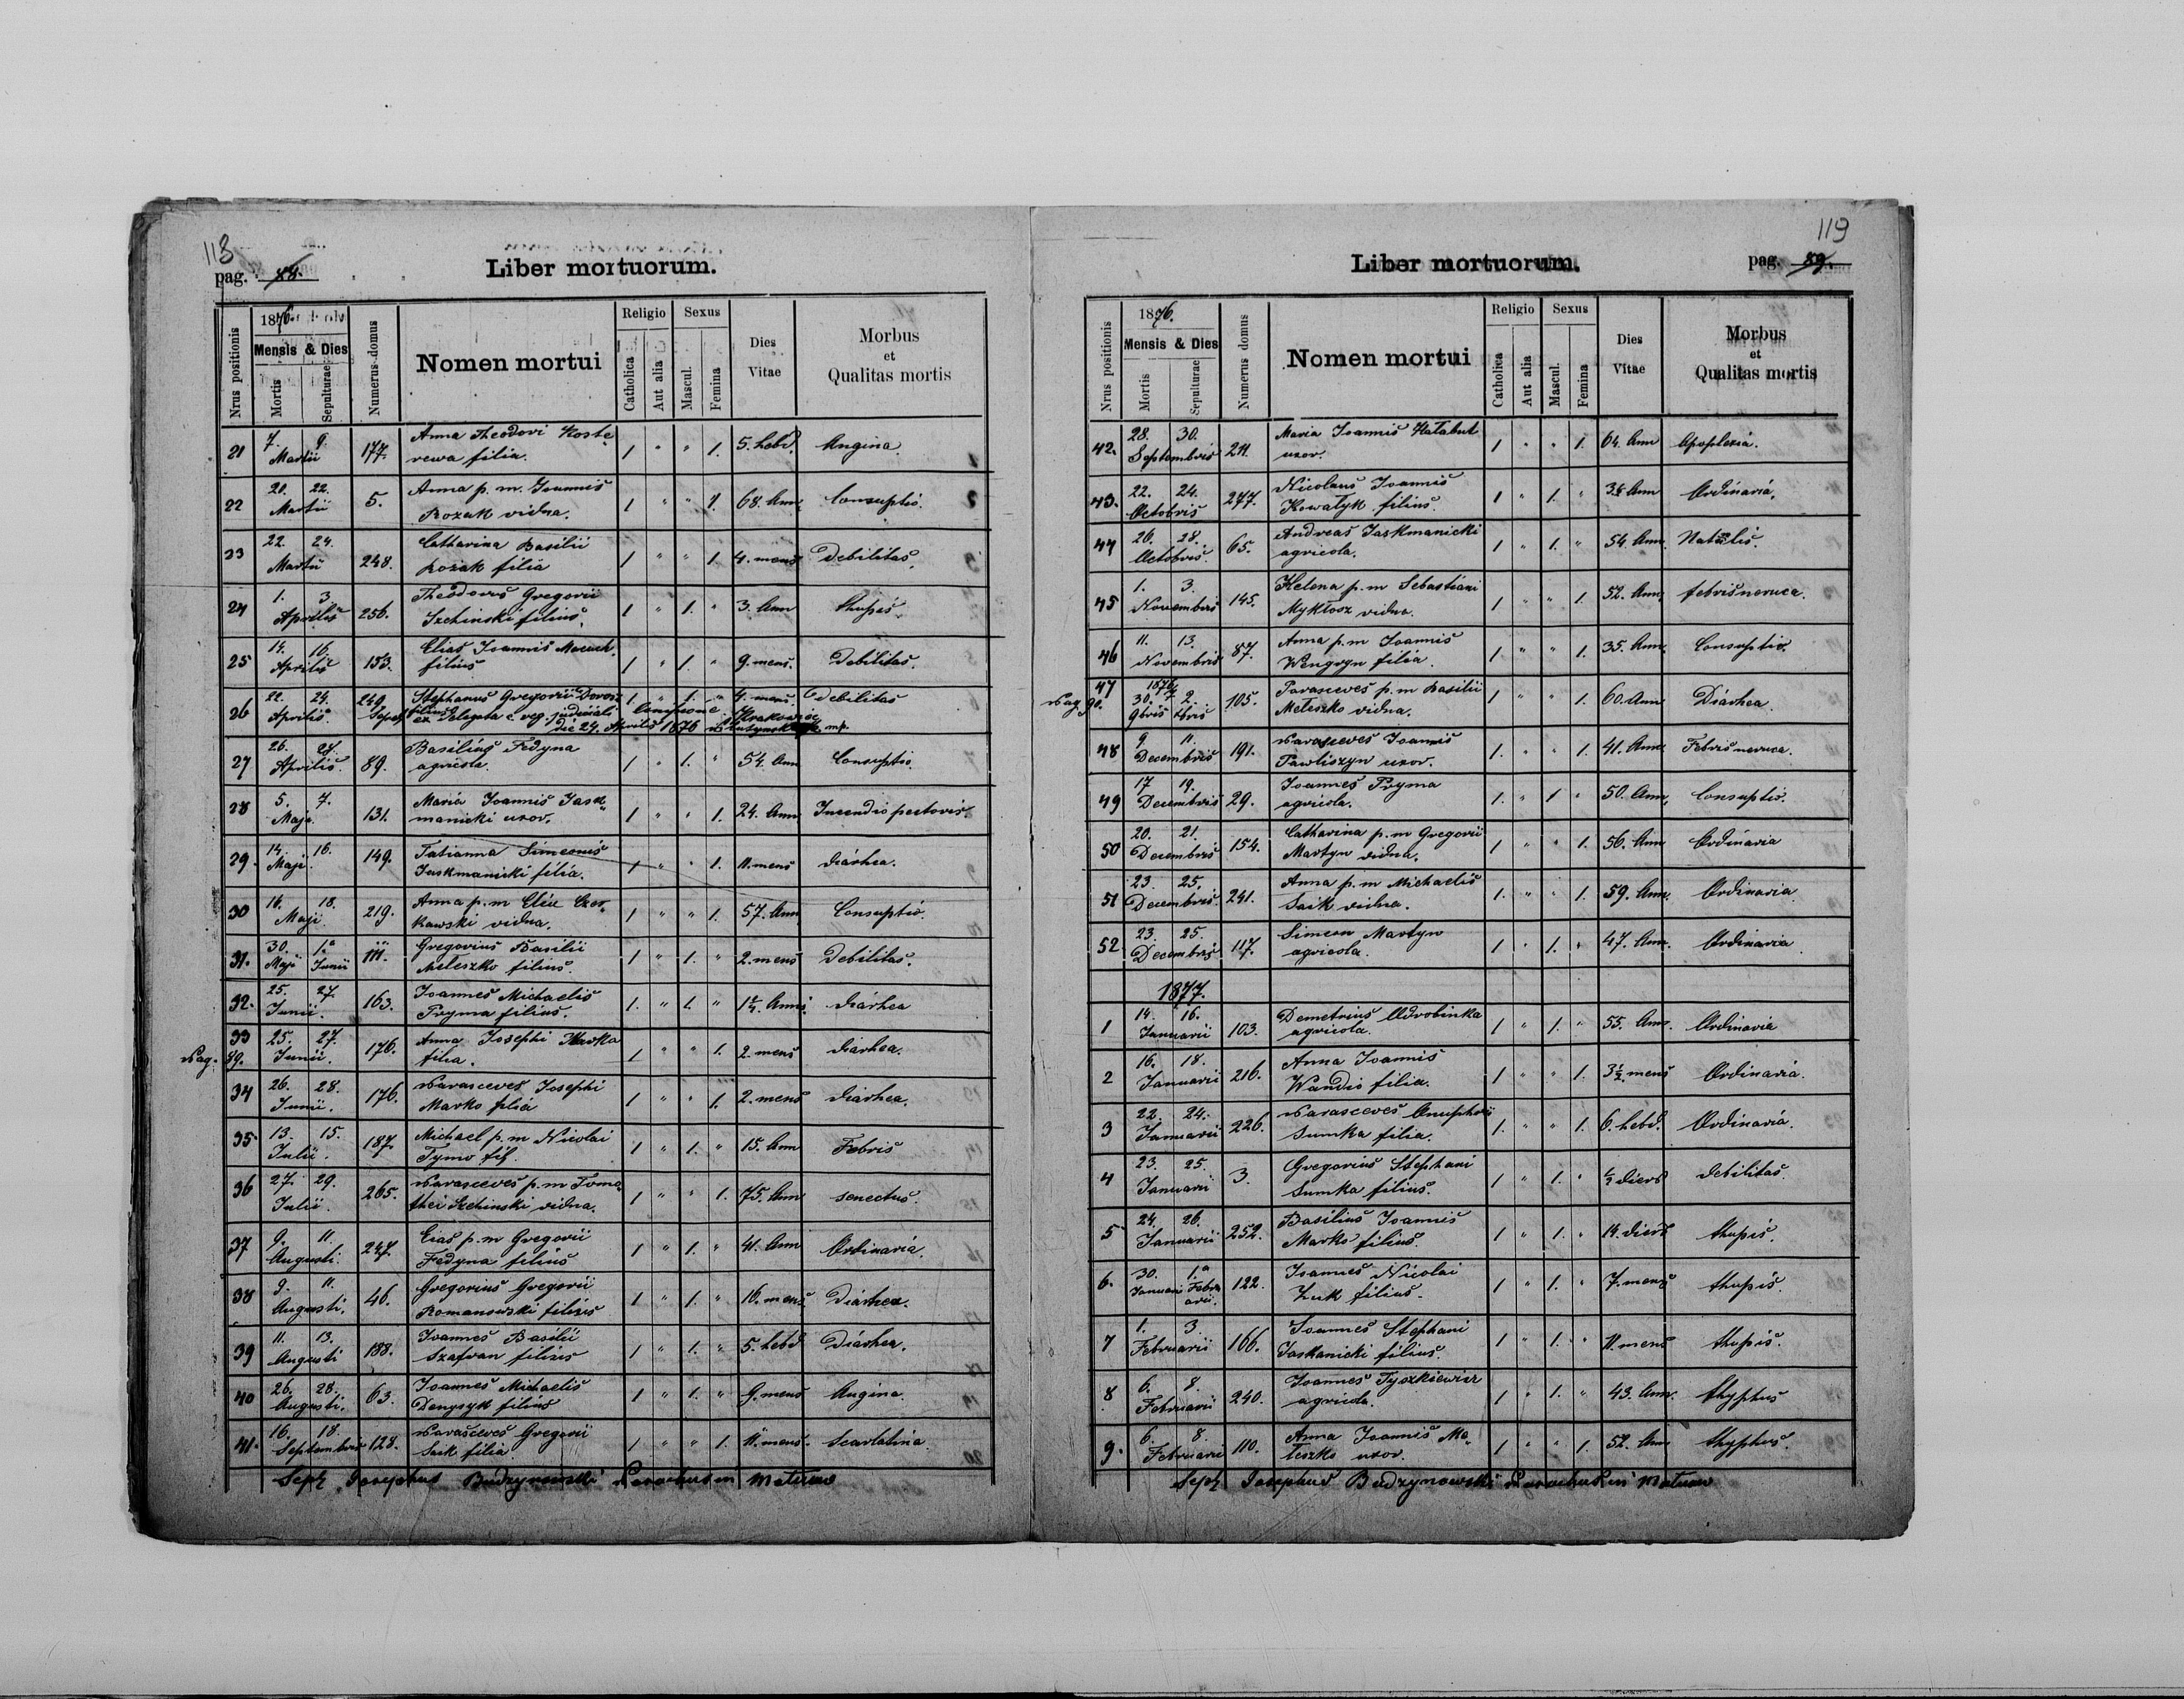 118
pag. 88.
Liber mortuorum.
Nrus positionis
1876.
Mensis & Dies
Mortis
Sepulturae
Numerus domus
Nomen mortui
Religio
Catholica
Aut alia
Sexus
Mascul.
Femina
Dies Vitae
Morbus et Qualitas mortis
21 7. 9. Martii 177. Anna Theodori Koste„ 1 " " 1. 5. hebd. Angina.
rewa filia.
22 20. 22. Martii 5. Anna p. m. Joannis 1 " " 1. 68. Ann. Consuptio.
Rozak vidua.
23 22. 24. Martii 248. Catharina Basilii 1 " " 1. 4. mens Debilitas.
Rozak filia
24 1. 3. Aprilis 256. Theodorus Gregorii 1 " 1. " 3. Ann thupis.
Szehinski filius.
25 14. 16. Aprilis 153. Elias Joannis 1 " 1. " 9. mens. Debilitas.
filius
26 22. 24. Aprilis 249. Stephanus Gregorii 1 " 1. " 4. mens. Debilitas
filius
ex Delegata c. reg. judiciali
die 24. Aprilis 1876
27 26. 28. Aprilis. 89. Basilius Fedyna 1 " 1. " 54. Ann Consuptio.
agricola.
28 5. 7. Maji. 131. Maria Joannis Jask„ 1 " " 1. 24. Ann Incendio pectoris.
manicki uxor.
29. 14. 16. Maji. 149. Tatianna Simeonis 1 " " 1. 11. mens diárhea.
Jaskmanicki filia.
30 16. 18. Maji. 219. Anna p. m Eliæ Czer„ 1 " " 1. 57. Ann Consuptio.
kawski vidua.
31. 30. 1.a Maji Junii 111. Gregorius Basilii 1 " 1. " 2. mens Debilitas.
Meleszko filius.
32. 25. 27. Junii. 163. Joannes Michaelis 1. " 1. " Anni. diárhea
Pryma filius.
33 25. 27. Junii. 176. Anna Josephi Marko 1 " " 1. 2. mens diárhea.
Pag. 89. filia.
34 26. 28. Junii. 176. Parasceves Josephi 1 " " 1. 2. mens diárhea.
Marko filia
35 13. 15. Julii. 187. Michael p. m Nicolai 1 " 1. " 15. Ann Febris
Pymo fil.
36 27. 29. Julii. 265. Parasceves p. m Timo„ 1 " " 1. 75. Ann senectus.
thei Szehinski vidua.
37 9. 11. Augusti. 247. Elias p. m Gregorii 1 " 1. " 41. Ann Ordinaria.
Fedyna filius
38 9. 11. Augusti. 46. Gregorius Gregorii 1 " 1. " 16. mens. Diárhea.
Romanowski filius
39 11. 13. Augusti 188. Joannes Basilii 1 " 1. " 5. hebd Diárhea.
Szafran filius
40 26. 28. Augusti. 63. Joannes Michaelis 1 " 1. " 9. mens Angina.
Denysyk filius
41. 16. 18. Septembris 128. Parasceves Gregorii 1 " " 1. 11. mens. Scarlatina.
Saik filia.
Seph Josephus Budzynowski Parochus in
119
Liber mortuorum.
pag. 89.
Nrus positionis
1876.
Mensis & Dies
Mortis
Sepulturae
Numerus domus
Nomen mortui
Religio
Catholica
Aut alia
Sexus
Mascul.
Femina
Dies Vitae
Morbus et Qualitas mortis
42. 28. 30. Septembris 211. Maria Joannis Hałabut 1 " " 1. 64. Ann Apoplexia.
uxor.
43. 22. 24. Octobris 277. Nicolaus Joannis 1 " 1. " Ann Ordinaria.
Kowalyk filius.
44 26. 28. Octobris. 65. Andreas Jaskmanicki 1 " 1. " 54. Ann. Natalis.
agricola.
45 1. 3. Novembris 145. Helena p. m Sebastiani 1 " " 1. 52. Ann. febris neruca.
Mykłosz vidua.
46 11. 13. Novembris 87. Anna p. m Joannis 1 " " 1. 35. Ann. Consuptio.
Wengryn filia.
47 1876 30. 2. 9bris Xbris 105. Parasceves p. m Basilii 1 " " 1. 60. Ann Diárhea.
Pag 90. Meleszko vidua.
48 9 11. Decembris 191. Parasceves Joannis 1. " " 1. 41. Ann. Febris neruca.
Pawliszyn uxor.
49 17 19. Decembris 29. Joannes Pryma 1. " 1 " 50. Ann. Consuptio.
agricola.
50 20. 21. Decembris 154. Catharina p. m Gregorii 1 " " 1. 56. Ann Ordinaria
Martyn vidua.
51 23. 25. Decembris. 241. Anna p. m Michaelis 1. " " 1. 59. Ann. Ordinaria.
Saik vidua.
52 23. 25. Decembris 117. Simeon Martyn 1 " 1. " 47. Ann. Ordinaria
agricola.
1877.
1 14. 16. Januarii 103. Demetrius Udrobinka 1 " 1. " 55. Ann. Ordinaria
agricola.
2 16. 18. Januarii 216. Anna Joannis 1 " " 1. 3½ mens Ordinaria.
Wandio filia.
3 22. 24. Januarii 226. Parasceves Onuphrii 1. " " 1. 6. hebd. Ordinaria.
Sumka filia.
4 23. 25. Januarii 3. Gregorius Stephani 1 " 1. " ½ dies debilitas.
Sumka filius.
5 24. 26. Januarii 252. Basilius Joannis 1 " 1. " 14. dies thupis.
Marko filius.
6. 30. 1.a Januarii Febru„arii. 122. Joannes Nicolai 1 " 1. " 7. mens thupis.
Zuk filius.
7 1. 3. Februarii 166. Joannes Stephani 1 " 1. " 11. mens thupis.
Jaskanicki filius.
8 6. 8. Februarii 240. Joannes Tyszkiewicz 1 " 1. " 43. Ann. thyphus
agricola.
9. 6. 8. Februarii 110. Anna Joannis Me„ 1 " " 1. 52. Ann thyphus.
leszko uxor.
Seph Josephus Budzynowski Parochus in